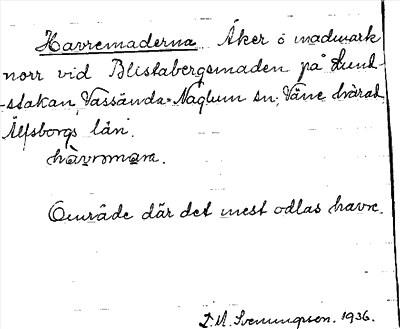 Havremaderna Åker o madmark
norr vid Blistabergsmaden på Lund-
-stakan, Vassända-Naglum sn, Väne härad
Älfsborgs län.
hàvrəmaṛa.
Område där det mest odlas havre.
D.A. Svenungson. 1936.